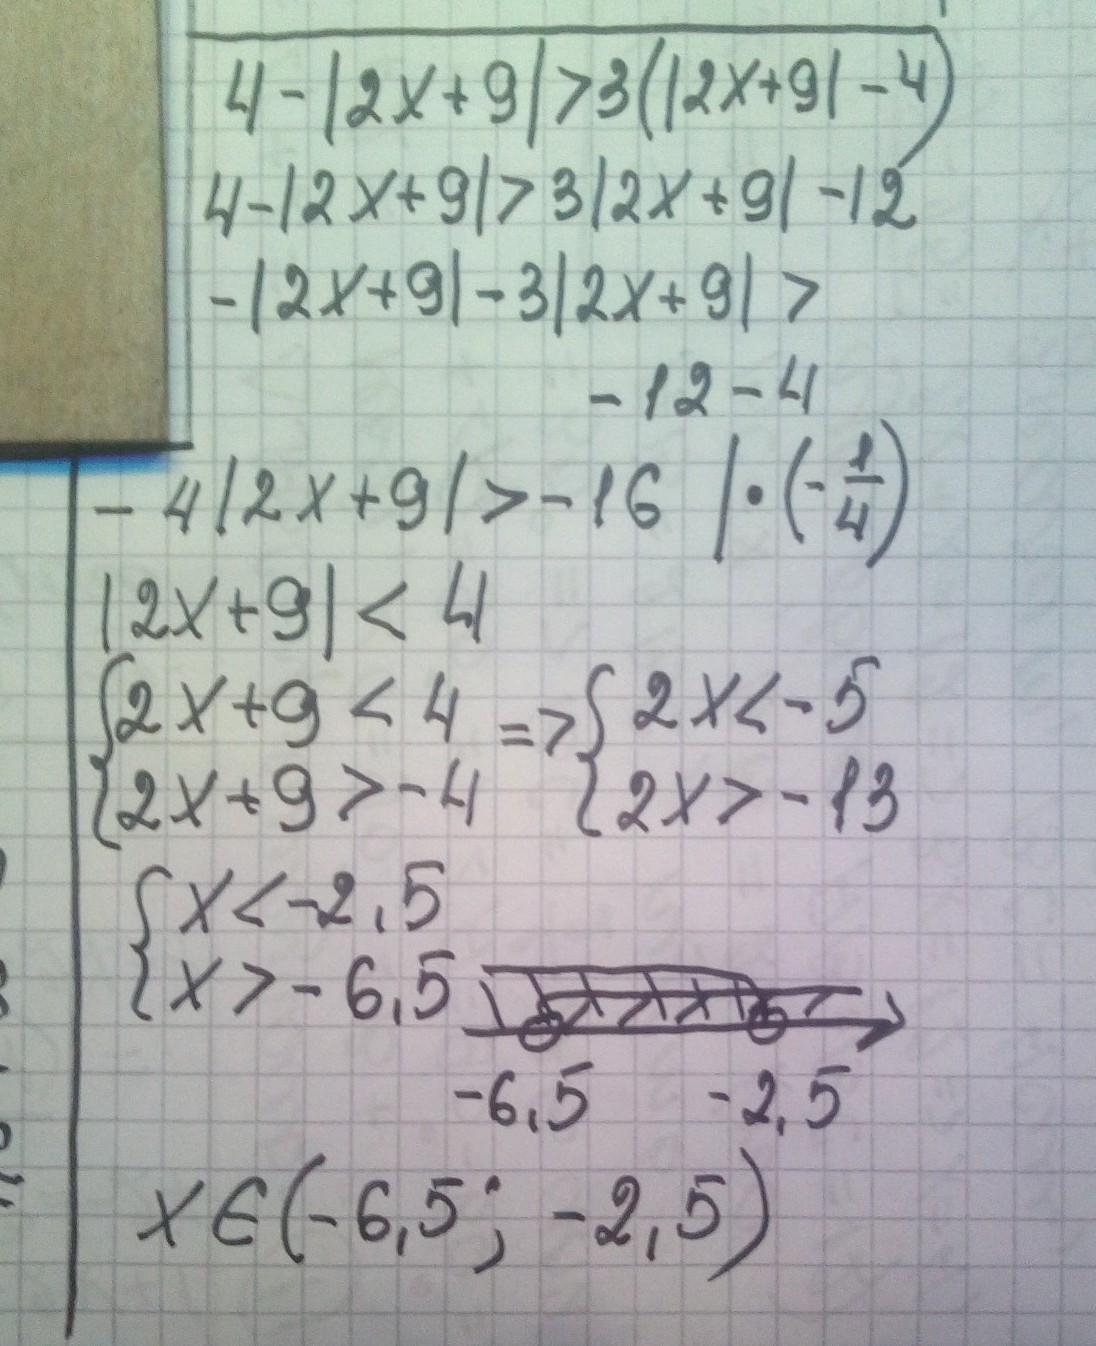 4-|2x+9|>3(|2x+9|-4)
4-|2x+9|>3|2x+9|-12
-|2x+9|-3|2x+9|>
-12-4
-4|2x+9|>-16 |·(-1/4)
|2x+9|<4
{2x+9<4 => {2x<-5
{2x+9>-4 {2x>-13
{x<-2,5
{x>-6,5
-6,5 -2,5
x∈(-6,5; -2,5)